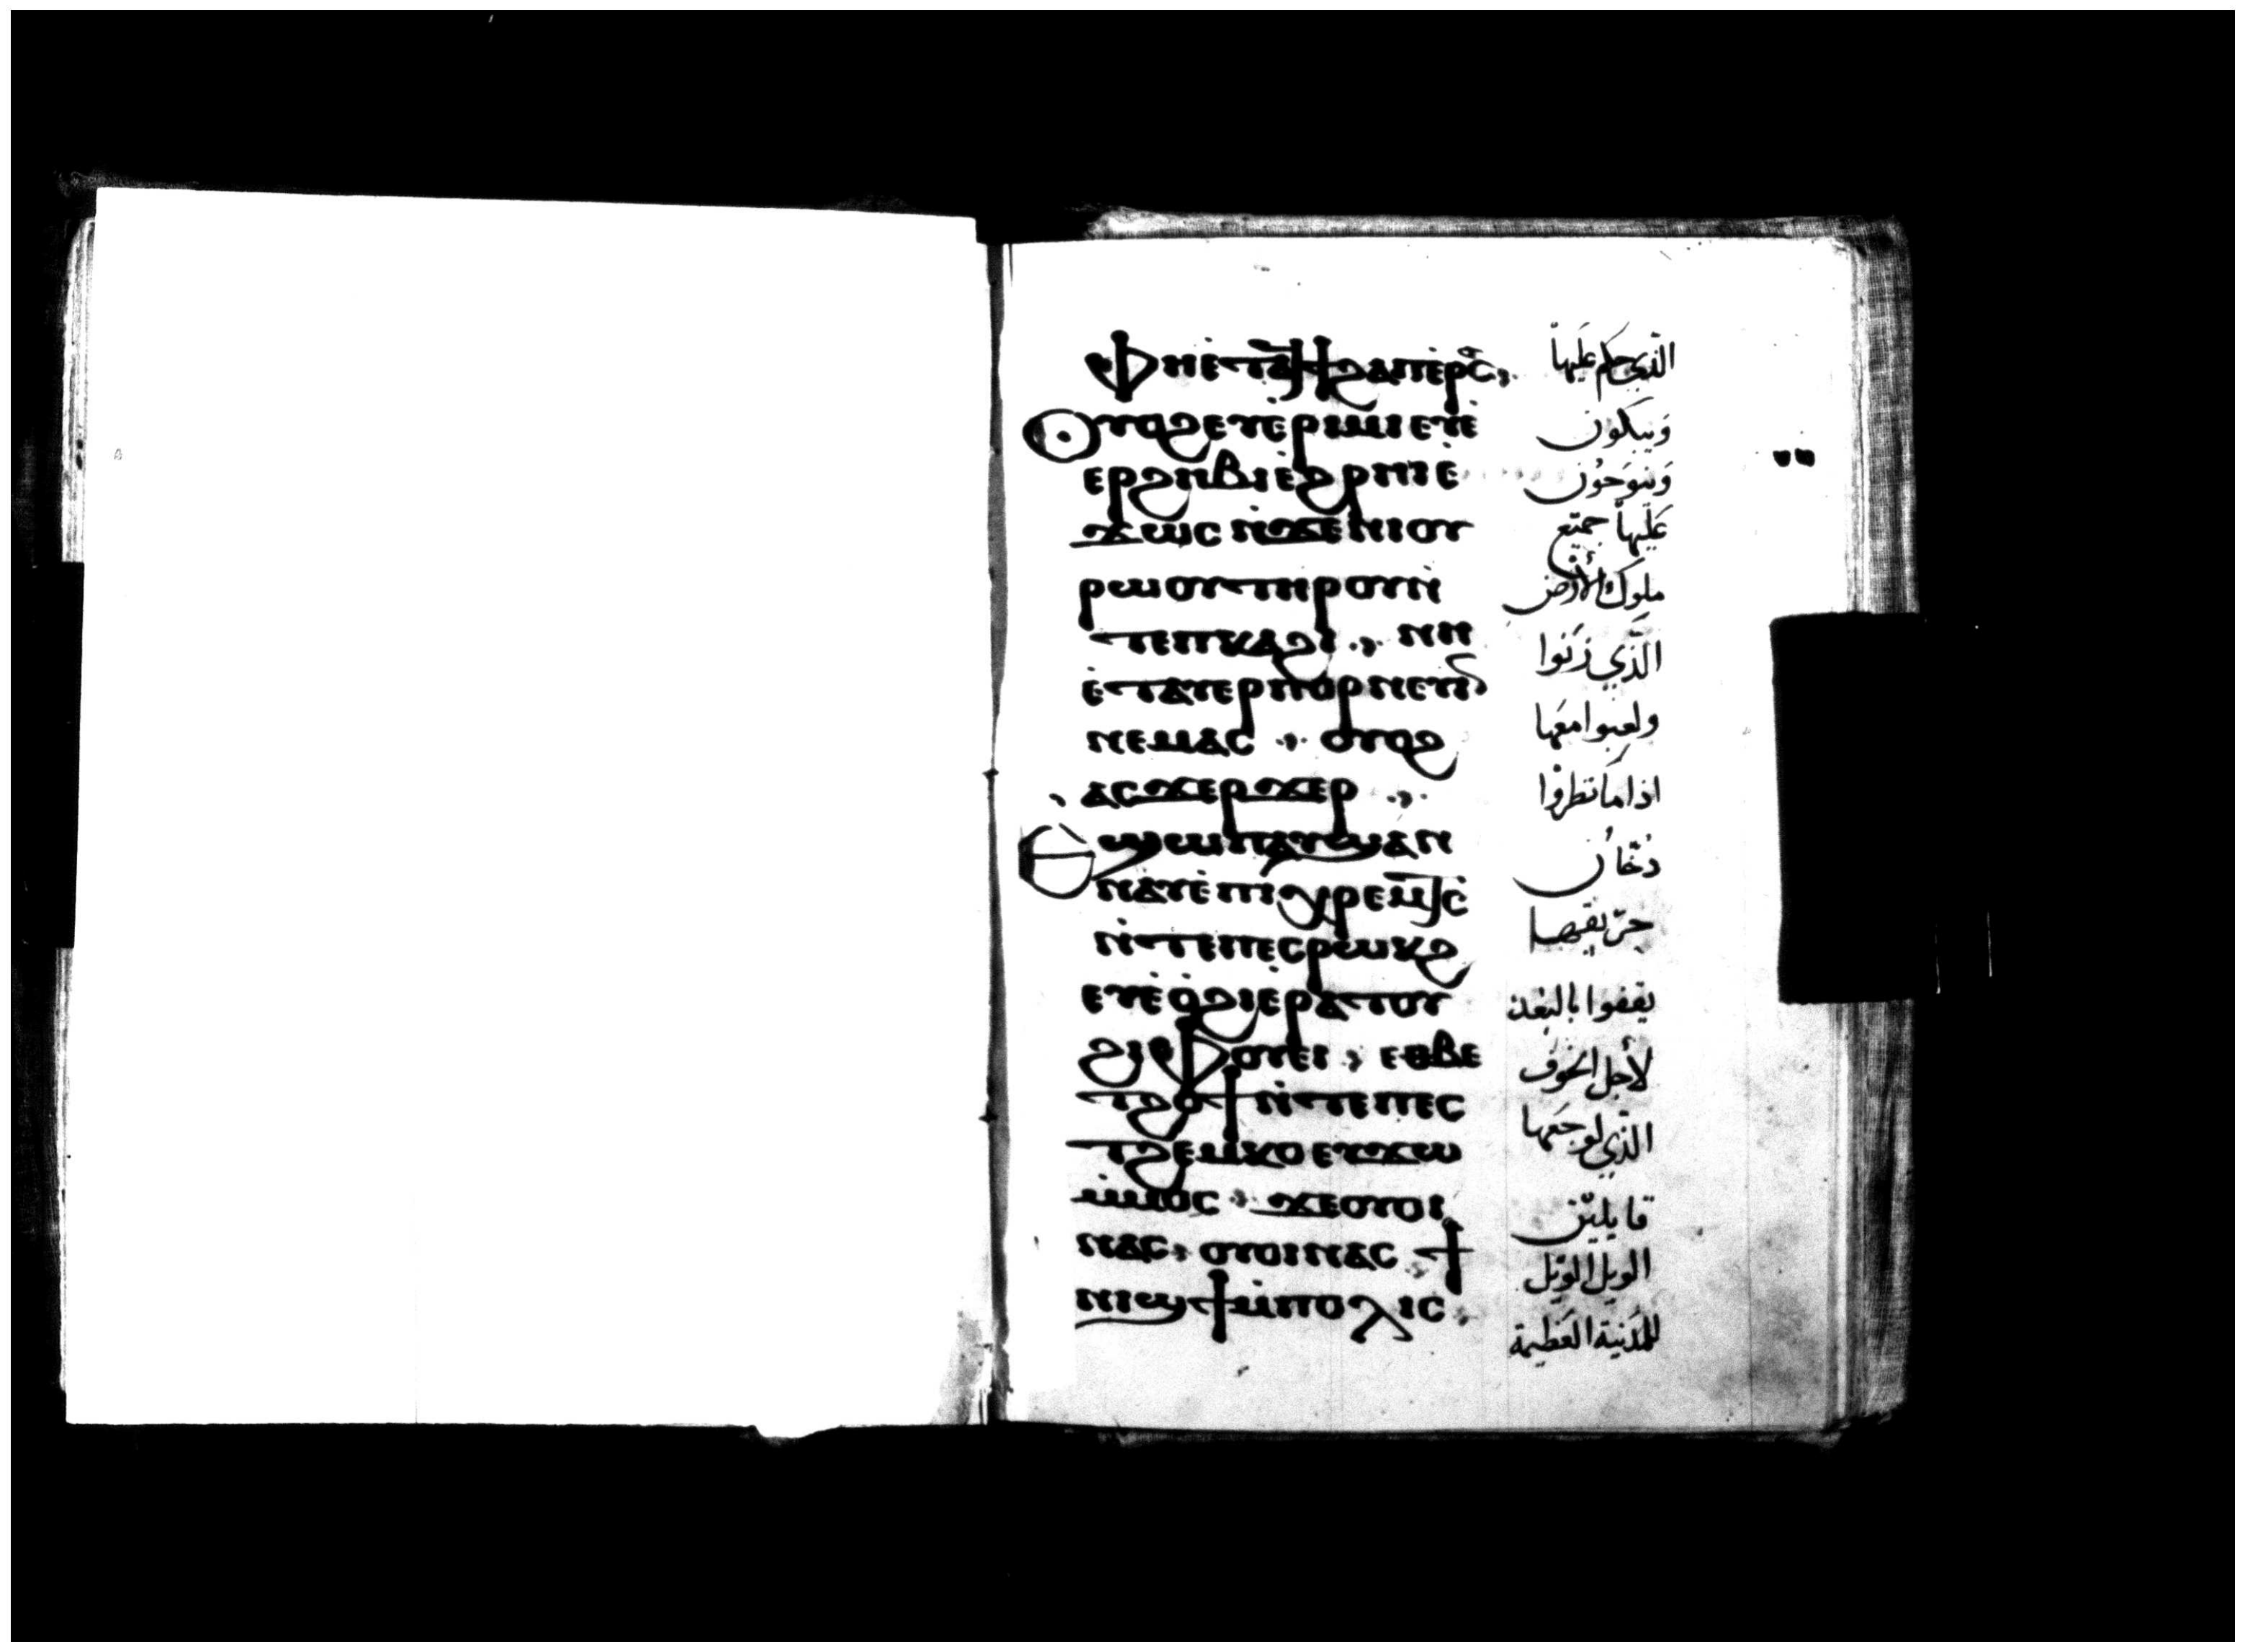 ⲫⲏⲉ̀ⲧⲁϥϯϩⲁⲡⲉ̀ⲣⲟⲥ,
ⲟⲩⲟϩⲉⲩⲉ̀ⲣⲓⲙⲓⲉⲩⲉ̀
ⲉⲣϩⲏⲃⲓⲉ̀ϩⲣⲏⲓⲉ̀
ϫⲱⲥⲛ̀ϫⲉⲛⲓⲟⲩ
ⲣⲱⲟⲩⲧⲏⲣⲟⲩⲛ̀
ⲧⲉⲡⲕⲁϩⲓ ⲛⲏ
ⲉ̀ⲧⲁⲩⲉⲣⲡⲟⲣⲛⲉⲩⲓⲛ
ⲛⲉⲙⲁⲥ ⲟⲩⲟϩ
ⲁⲥϫⲉⲣϫⲉⲣ
ⲉϣⲱⲡⲁⲩϣⲁⲛ
ⲛⲁⲩⲉ̀ⲡⲓⲭⲣⲉⲙⲧⲥ̀
ⲛ̀ⲧⲉⲡⲉⲥⲣⲱⲕϩ
ⲉⲩⲉ̀ⲟ̀ϩⲓⲉ̀ⲣⲁⲧⲟⲩ
ϩⲓⲫⲟⲩⲉⲓ, ⲉⲑⲃⲉ
ⲧϩⲟϯⲛ̀ⲧⲉⲡⲉⲥ
ⲧϩⲉⲙⲕⲟⲉⲩϫⲱ
ⲙ̀ⲙⲟⲥ ϫⲉⲟⲩⲟⲓ
ⲛⲁⲥ, ⲟⲩⲟⲓⲛⲁⲥ ϯ
ⲛⲓϣϯⲙ̀ⲡⲟⲗⲓⲥ
الذي حكم عليها
ويبكون
وينوحون
عليها جميع
ملوك الأرض
الذي زنوا
ولعبوا معها
اذا ما نظروا
دخان
حريقها
يقفوا بالبعد
لأجل الخوف
الذي لوجعها
قايلين
الويل الويل
للمدنية العظيمة